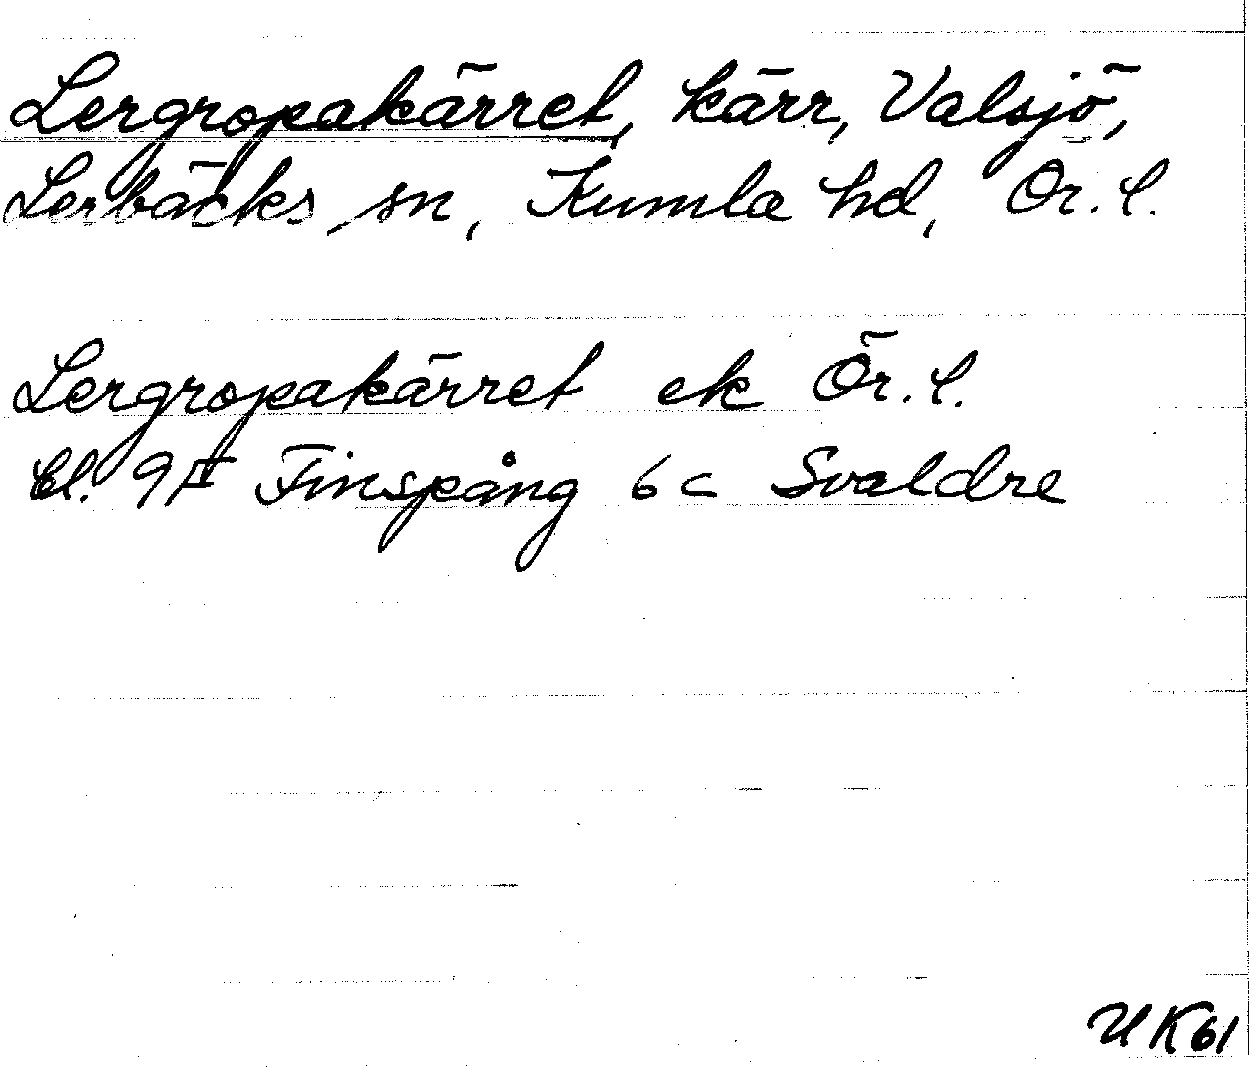 Lergropakärret, kärr, Valsjö,
Lerbäcks sn, Kumla hd, Ör. l.
Lergropakärret ek Ör. l.
bl. 9F Finspång 6c Svaldre
UK61